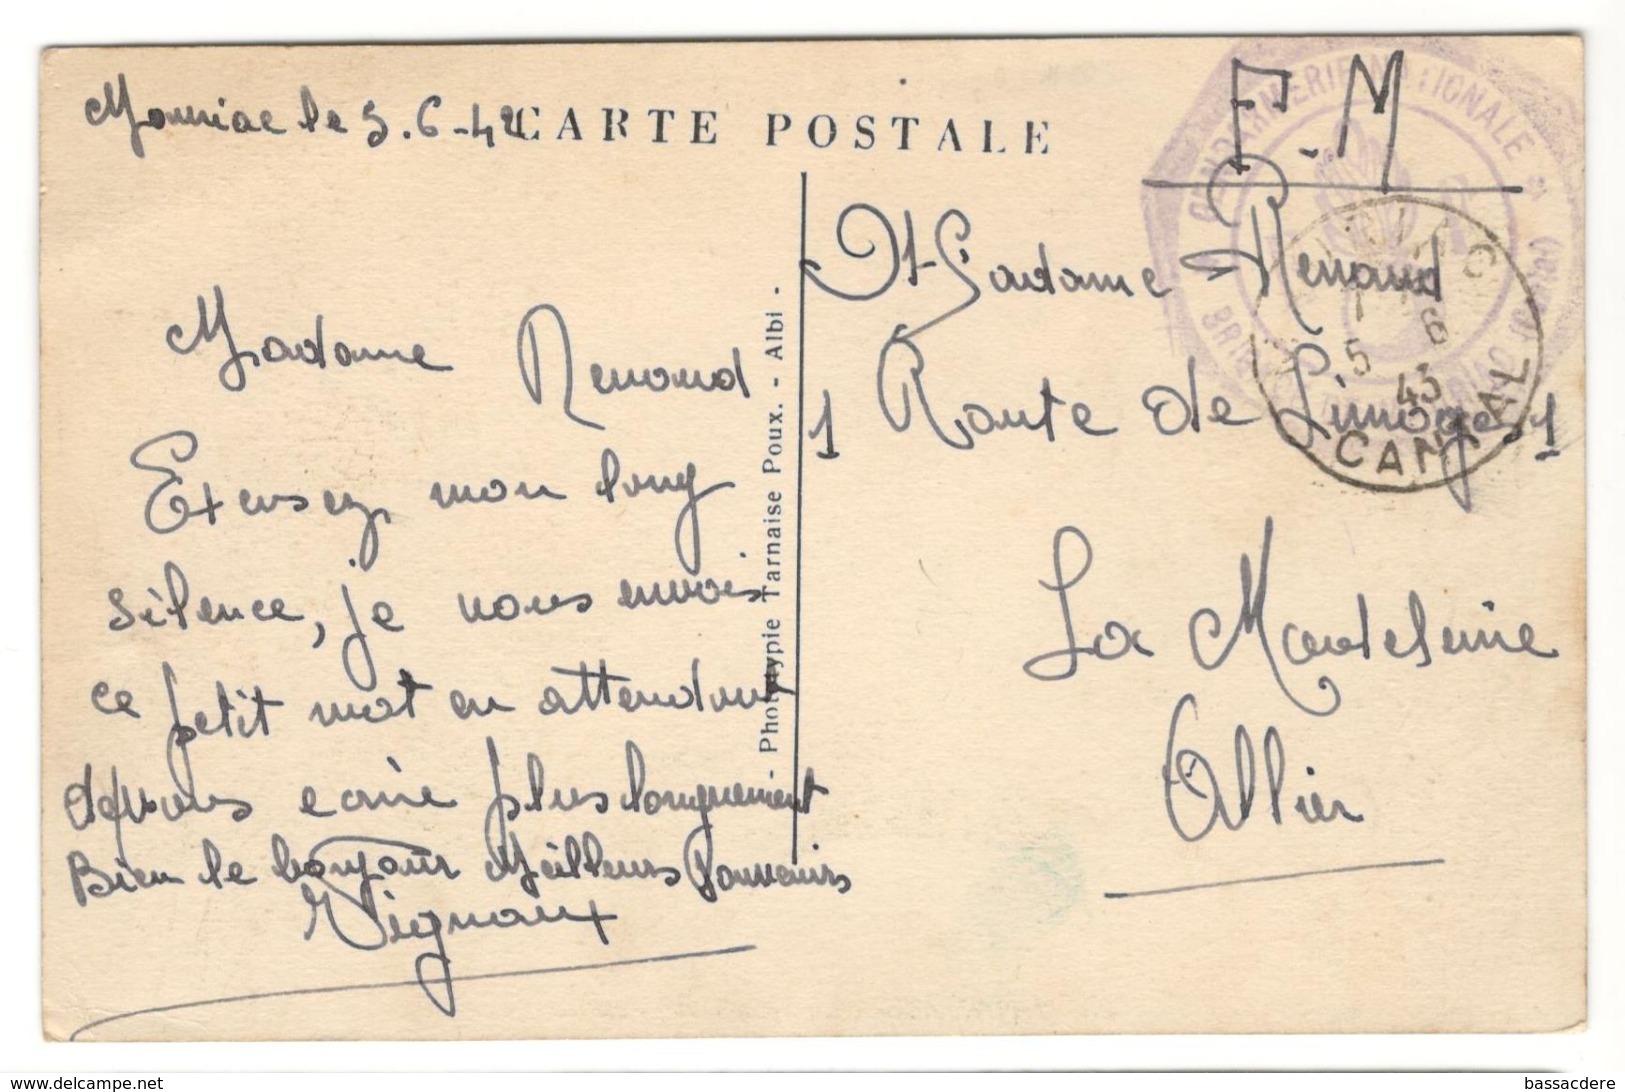 Mauriac le 5.6-42
CARTE POSTALE
F.M
GENDARMERIE NATIONALE
BRIGADE DE MAURIAC (Cantal)
MAURIAC
5 6
43
CANTAL
Madame Renaud
Excusez, mon long
silence, je vous envois
ce petit mot en attendant
de vous ecrire plus longuement
Bien le bonjour Meilleurs Souvenirs
Vignaux
- Phototypie Tarnaise Poux. - Albi -
Madame Renaud
1 Route de Limoge 1
La Madeleine
Allier
www.delcampe.net
bassacdere